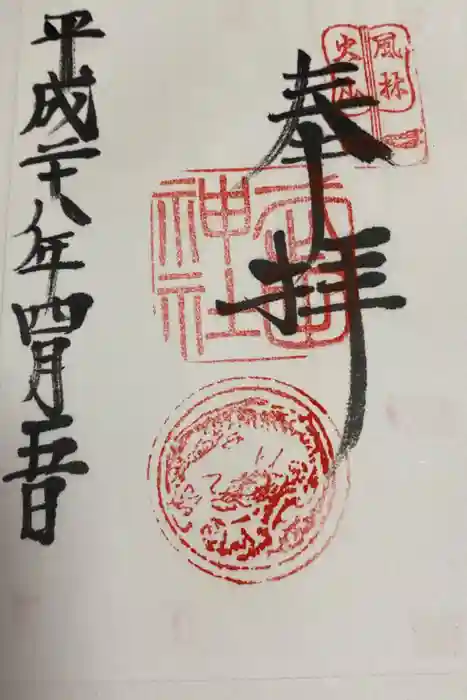 風林
火山
奉拝
神社
平成二十八年四月五日